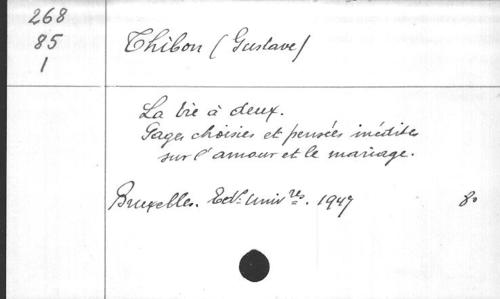 268
85
1
Thibon (Gustave)
La vie à deux.
Pages choisies et pensées inédites
sur l'amour et le mariage.
Bruxelles. Edit. Univ.res. 1947 8o